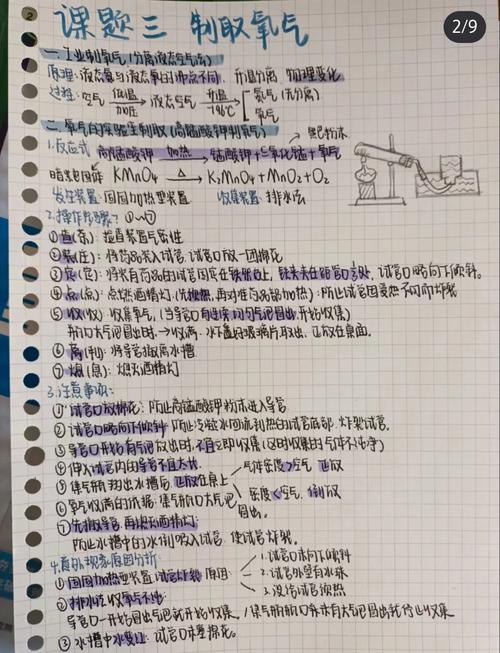 2/9
课题三 制取氧气
一.工业制氧气(分离液态空气法)
原理:液态氮与液态氧的沸点不同,升温分离,物理变化
过程:空气 低温 加压 → 液态空气 升温 -196℃ → 氮气(先分离)
氧气
二.氧气的实验室制取(高锰酸钾制氧气) → 黑色粉末
1.反应式 高锰酸钾 加热 → 锰酸钾+二氧化锰+氧气
暗紫色固体 KMnO4 △ → K2MnO4+MnO2+O2
发生装置:固固加热型装置 收集装置:排水法
2.操作步骤:①~⑦
①查(茶):检查装置气密性
②装(庄):将药品装入试管,试管口放一团棉花
③定(定):将装有药品的试管固定在铁架台上,铁夹夹在距管口1/3处,试管口略向下倾斜。
④点(点):点燃酒精灯(先预热,再对准药品部加热):防止试管因受热不均而炸裂
⑤收(收):收集氧气(当导管口有连续均匀气泡冒出,开始收集)
瓶口大气泡冒出时→收满:水下盖好玻璃片取出,正放在桌面.
⑥离(利):将导管撤离水槽
⑦熄(息):熄灭酒精灯
3.注意事项:
①试管口放棉花:防止高锰酸钾粉末进入导管
②试管口略向下倾斜:防止冷凝水回流到热的试管底部,炸裂试管.
③导管口开始有气泡放出时,不宜立即收集(这时收集的气体不纯净)
④伸入试管内的导管不宜太长
⑤集气瓶移出水槽后,正放在桌上 气体密度>空气 正放
密度<空气,倒放
⑥氧气收满的依据:集气瓶口大气泡冒出.
⑦先撤导管,再熄灭酒精灯:
防止水槽中的水倒吸入试管,使试管炸裂.
4.意外现象原因分析:
①固固加热型装置试管炸裂原因 1.试管口未向下倾斜
2.试管外壁有水珠
3.没给试管预热
②排水法收氧气不纯:
导管口一开始冒出气泡就开始收集./集气瓶瓶口未有大气泡冒出就停止收集.
③水槽中水变红:试管口未塞棉花.